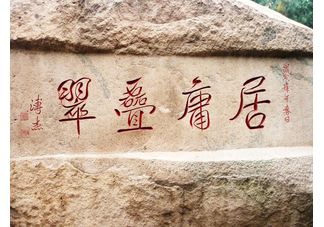 居庸疊翠
溥杰